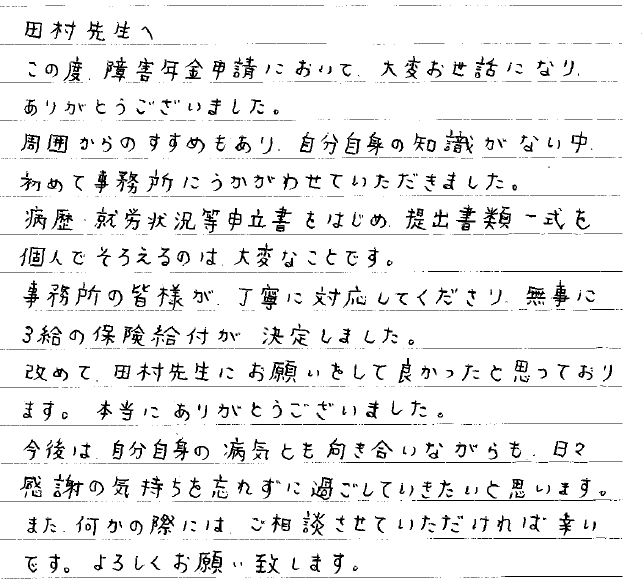 田村先生へ
この度、障害年金申請において、大変お世話になり、
ありがとうございました。
周囲からのすすめもあり、自分自身の知識がない中、
初めて事務所にうかがわせていただきました。
病歴・就労状況等申立書をはじめ、提出書類一式を
個人でそろえるのは、大変なことです。
事務所の皆様が、丁寧に対応してくださり、無事に
3給の保険給付が決定しました。
改めて、田村先生にお願いをして良かったと思っており
ます。本当にありがとうございました。
今後は、自分自身の病気とも向き合いながらも、日々
感謝の気持ちを忘れずに過ごしていきたいと思います。
また、何かの際には、ご相談させていただければ幸い
です。よろしくお願い致します。